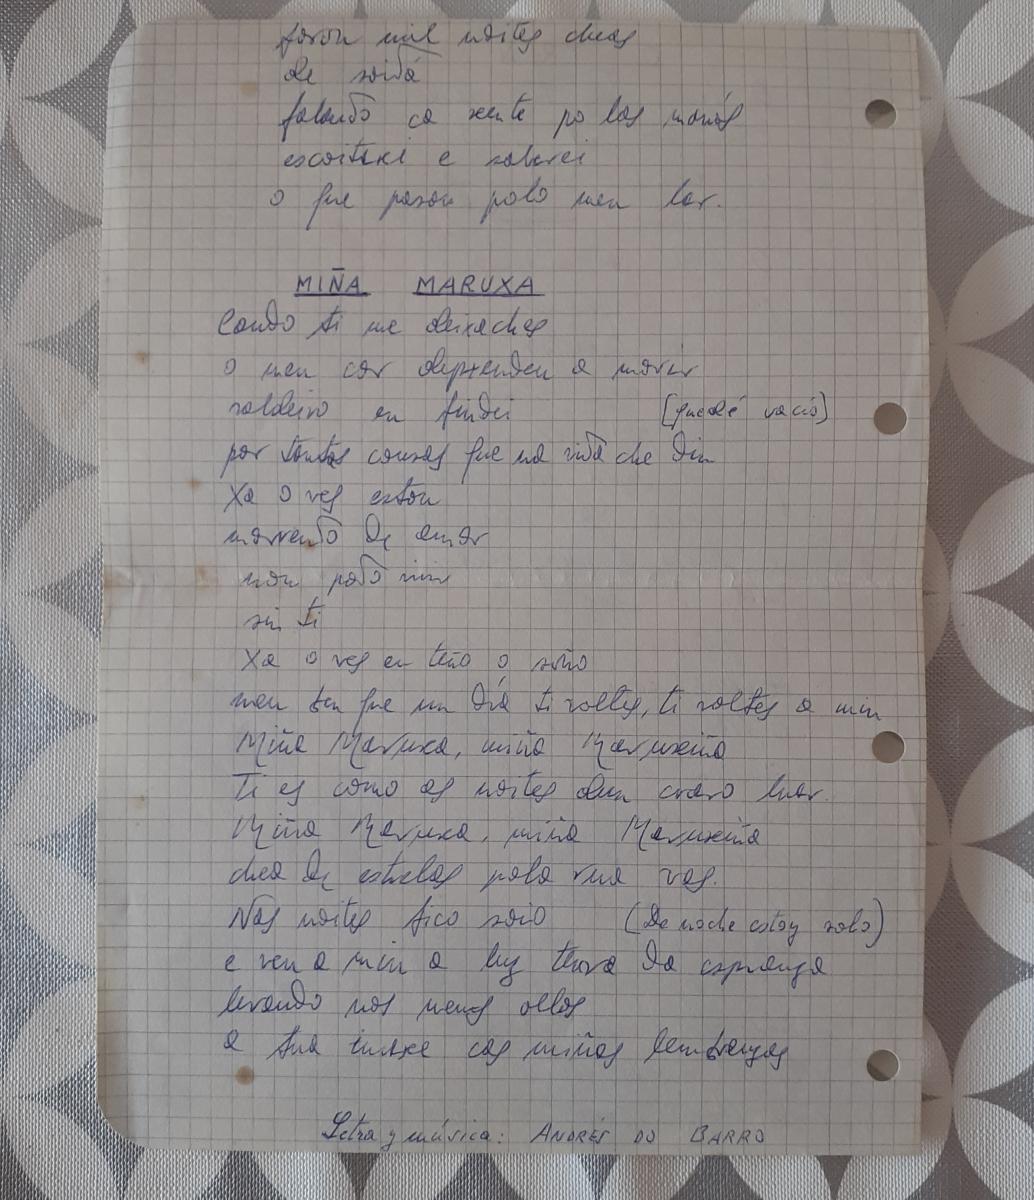 foron mil noites cheas
de soidá
falando ca xente po las mañás
escoitarei e saberei
o que pasou polo meu lar.
MIÑA MARUXA
Cando ti me deixaches
o meu cor deprendeu a morir
valdeiro eu findei [quedé vacío]
por tantas cousas que na vida che din
Xa o ves estou
morrendo de amor
non podo vivir
sin ti
Xa o ves eu teño o soño
meu ben que un día ti voltes, ti voltes a min
Miña Maruxa, miña Maruxiña
Ti es como as noites dun craro luar.
Miña Maruxa, miña Maruxiña
chea de estrelas pola rua vas.
Nas noites fico soio (De noche estoy solo)
e ven a min a luz terra da espranza
levando nos meus ollos
a tua imaxe cas miñas lembranzas
Letra y música: ANDRÉS DO BARRO